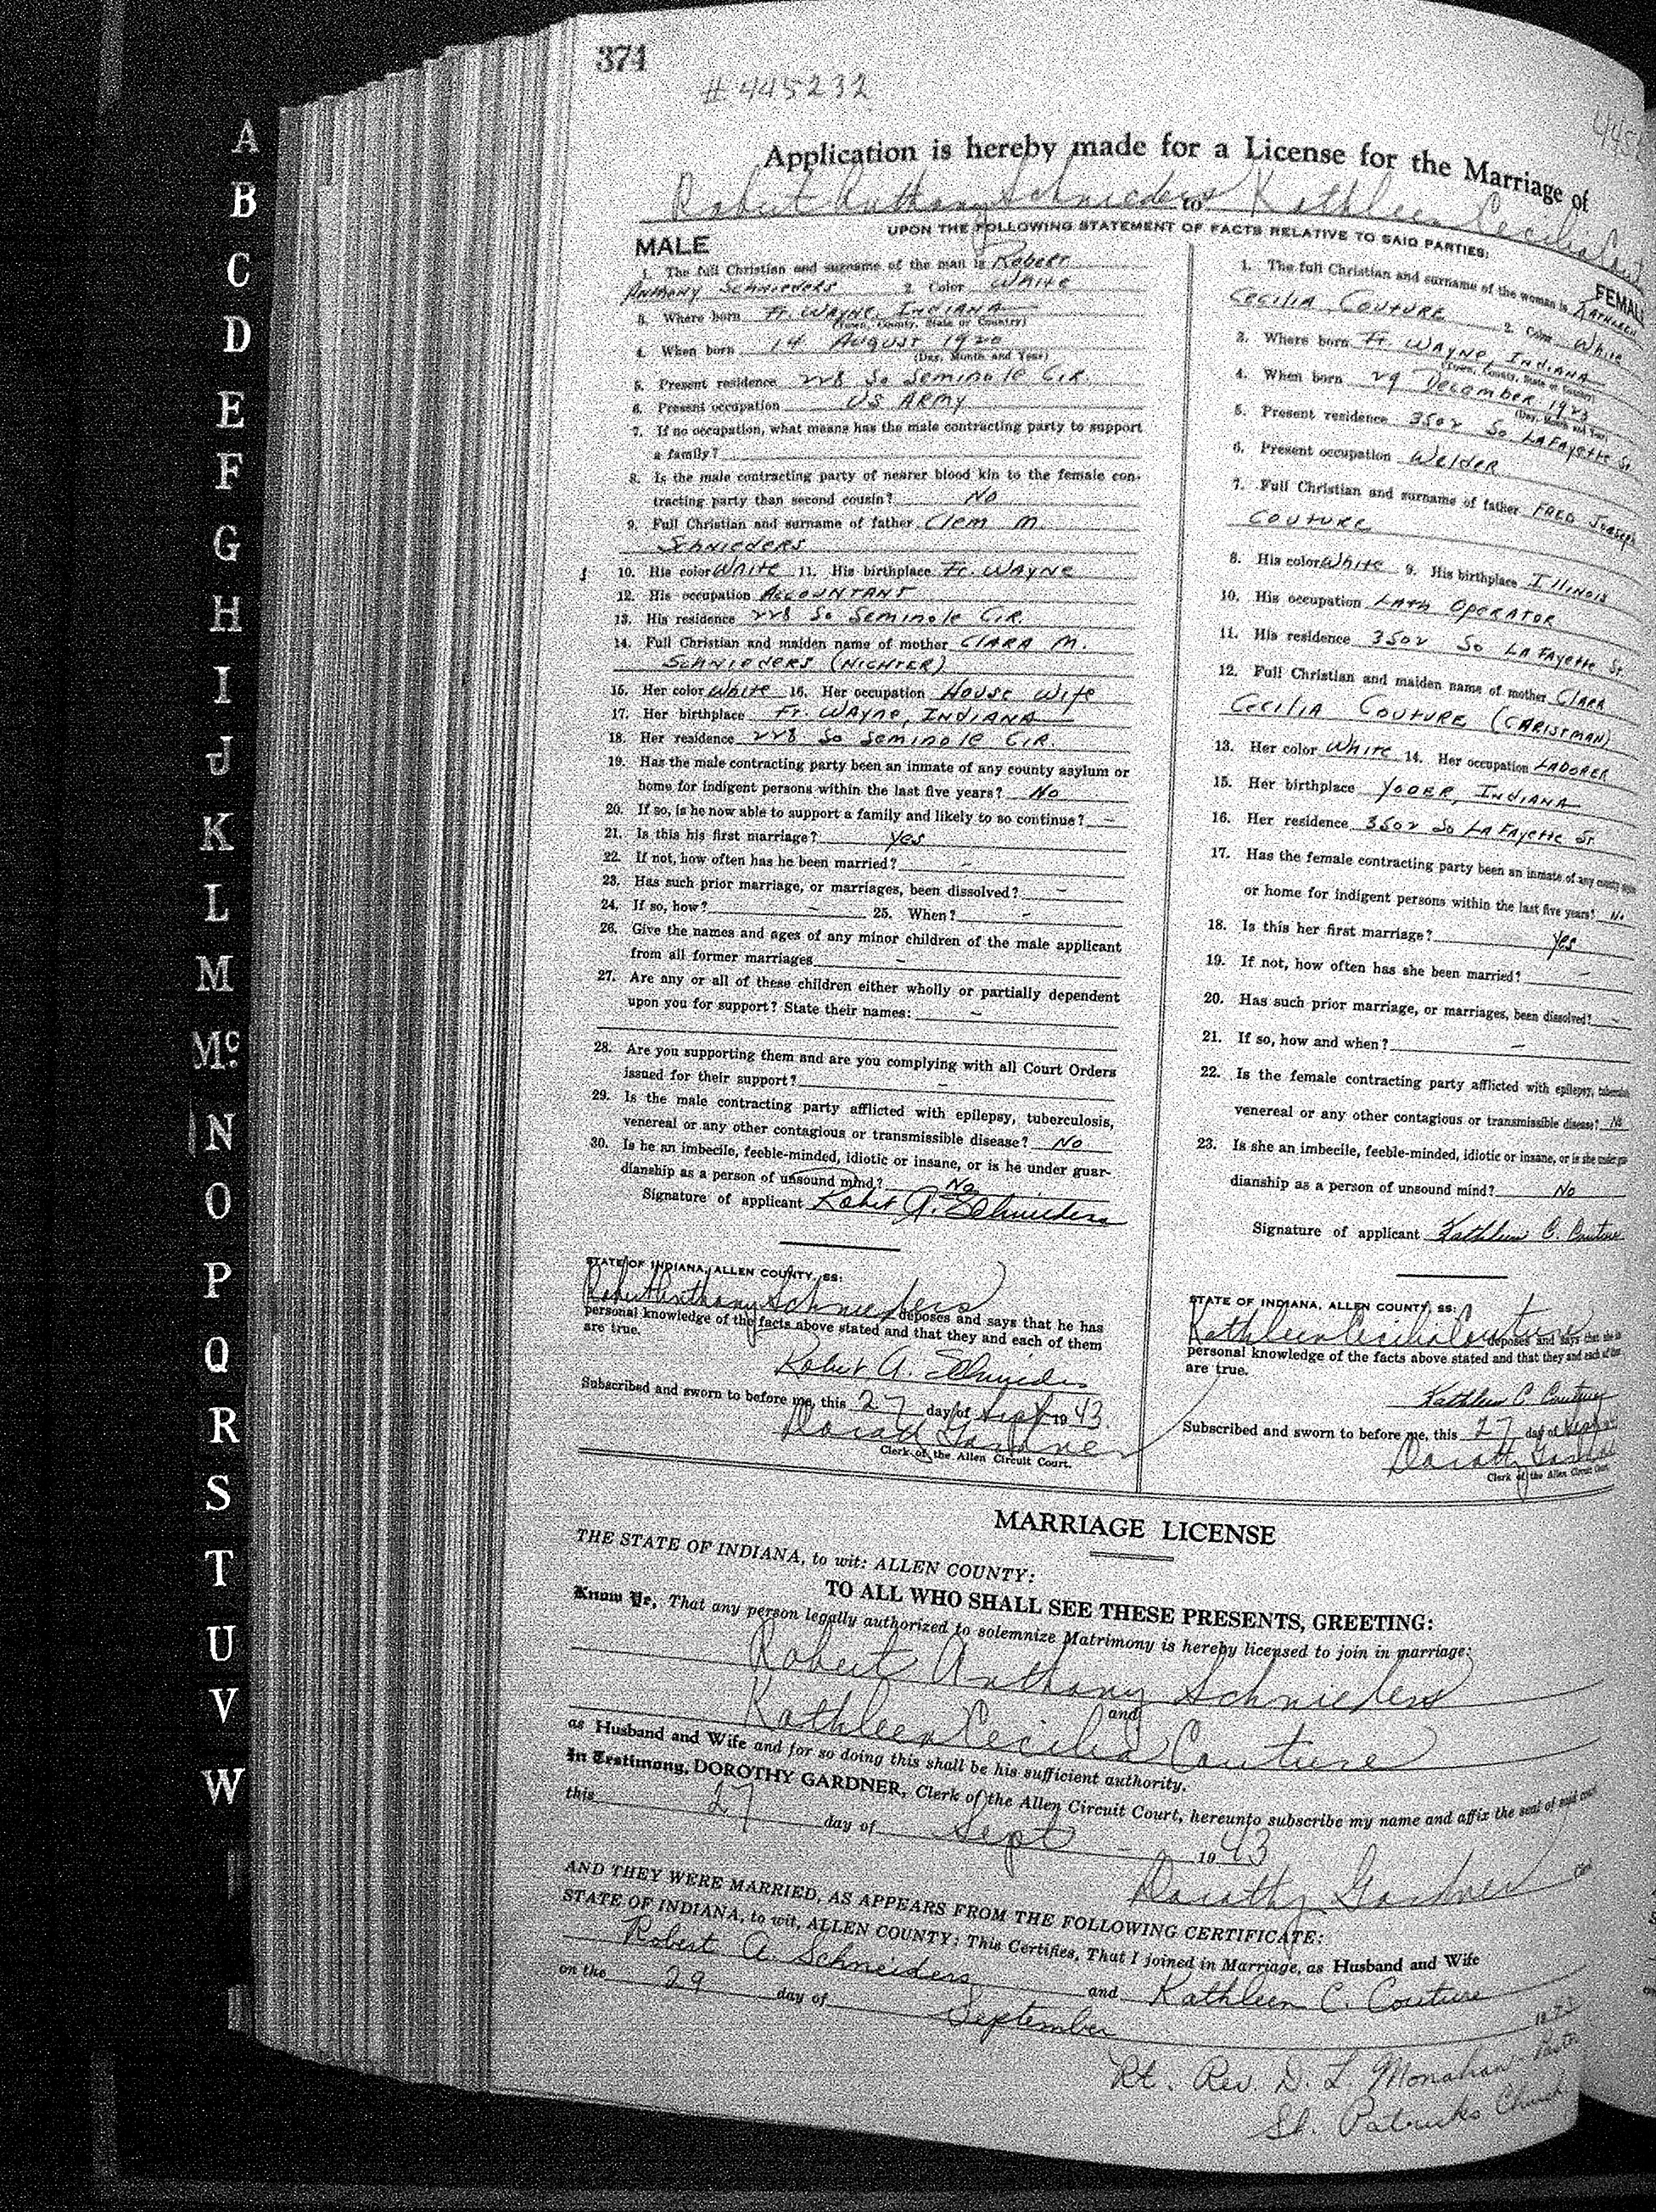 374
# 445232
Application is hereby made for a License for the Marriage of
Robert Anthony Schnieders to Kathleen Cecilia
UPON THE FOLLOWING STATEMENT OF FACTS RELATIVE TO SAID PARTIES:
MALE
1. The full Christian and surname of the man is Robert
Anthony Schnieders 2. Color White
3. Where born Ft. Wayne, Indiana
(Town, County, State or Country)
4. When born 14 August 1920
(Day, Month and Year)
5. Present residence 228 So Seminole Cir.
6. Present occupation US Army
7. If no occupation, what means has the male contracting party to support
a family?
8. Is the male contracting party of nearer blood kin to the female con-
tracting party than second cousin? No
9. Full Christian and surname of father Clem M.
Schnieders
10. His color White 11. His birthplace Ft. Wayne
12. His occupation Accountant
13. His residence 228 So Seminole Cir.
14. Full Christian and maiden name of mother Clara M.
Schnieders (Nichter)
15. Her color White 16. Her occupation House Wife
17. Her birthplace Ft. Wayne, Indiana
18. Her residence 228 So Seminole Cir.
19. Has the male contracting party been an inmate of any county asylum or
home for indigent persons within the last five years? No
20. If so, is he now able to support a family and likely to so continue? -
21. Is this his first marriage? Yes
22. If not, how often has he been married? -
23. Has such prior marriage, or marriages, been dissolved? -
24. If so, how? - 25. When? -
26. Give the names and ages of any minor children of the male applicant
from all former marriages -
27. Are any or all of these children either wholly or partially dependent
upon you for support? State their names: -
28. Are you supporting them and are you complying with all Court Orders
issued for their support? -
29. Is the male contracting party afflicted with epilepsy, tuberculosis,
venereal or any other contagious or transmissible disease? No
30. Is he an imbecile, feeble-minded, idiotic or insane, or is he under guar-
dianship as a person of unsound mind? No
Signature of applicant Robert A. Schnieders
STATE OF INDIANA, ALLEN COUNTY, SS:
Robert Anthony Schnieders deposes and says that he has
personal knowledge of the facts above stated and that they and each of them
are true.
Robert A. Schnieders
Subscribed and sworn to before me, this 27 day of Sept 1943.
Dorothy Gardner
Clerk of the Allen Circuit Court.
FEMALE
1. The full Christian and surname of the woman is Kathleen
Cecilia Couture 2. Color White
3. Where born Ft. Wayne, Indiana
(Town, County, State or Country)
4. When born 29 December 1923
(Day, Month and Year)
5. Present residence 3502 So LaFayette St.
6. Present occupation Welder
7. Full Christian and surname of father Fred Joseph
Couture
8. His color White 9. His birthplace Illinois
10. His occupation Lath Operator
11. His residence 3502 So LaFayette St.
12. Full Christian and maiden name of mother Clara
Cecilia Couture (Christman)
13. Her color White 14. Her occupation Laborer
15. Her birthplace Yoder, Indiana
16. Her residence 3502 So LaFayette St.
17. Has the female contracting party been an inmate of any county
or home for indigent persons within the last five years? No
18. Is this her first marriage? Yes
19. If not, how often has she been married? -
20. Has such prior marriage, or marriages, been dissolved? -
21. If so, how and when? -
22. Is the female contracting party afflicted with epilepsy, tuberculosis
venereal or any other contagious or transmissible disease? No
23. Is she an imbecile, feeble-minded, idiotic or insane, or is she under
dianship as a person of unsound mind? No
Signature of applicant Kathleen C. Couture
STATE OF INDIANA, ALLEN COUNTY, SS:
Kathleen Cecilia Couture deposes and says that she
personal knowledge of the facts above stated and that they and each of
are true.
Kathleen C. Couture
Subscribed and sworn to before me, this 27 day of Sept
Dorothy Gardner
Clerk of the Allen Circuit Court
MARRIAGE LICENSE
THE STATE OF INDIANA, to wit: ALLEN COUNTY:
TO ALL WHO SHALL SEE THESE PRESENTS, GREETING:
Know Ye, That any person legally authorized to solemnize Matrimony is hereby licensed to join in marriage:
Robert Anthony Schnieders
and
Kathleen Cecilia Couture
as Husband and Wife and for so doing this shall be his sufficient authority.
In Testimony, DOROTHY GARDNER, Clerk of the Allen Circuit Court, hereunto subscribe my name and affix the seal of said court
this 27 day of Sept 1943
Dorothy Gardner Clerk
AND THEY WERE MARRIED, AS APPEARS FROM THE FOLLOWING CERTIFICATE:
STATE OF INDIANA, to wit, ALLEN COUNTY; This Certifies, That I joined in Marriage, as Husband and Wife
Robert A. Schneiders and Kathleen C. Couture
on the 29 day of September 1943
Rt. Rev. D. L. Monahan - Pastor
St. Patricks Church
A
B
C
D
E
F
G
H
I
J
K
L
M
Mc
N
O
P
Q
R
S
T
U
V
W